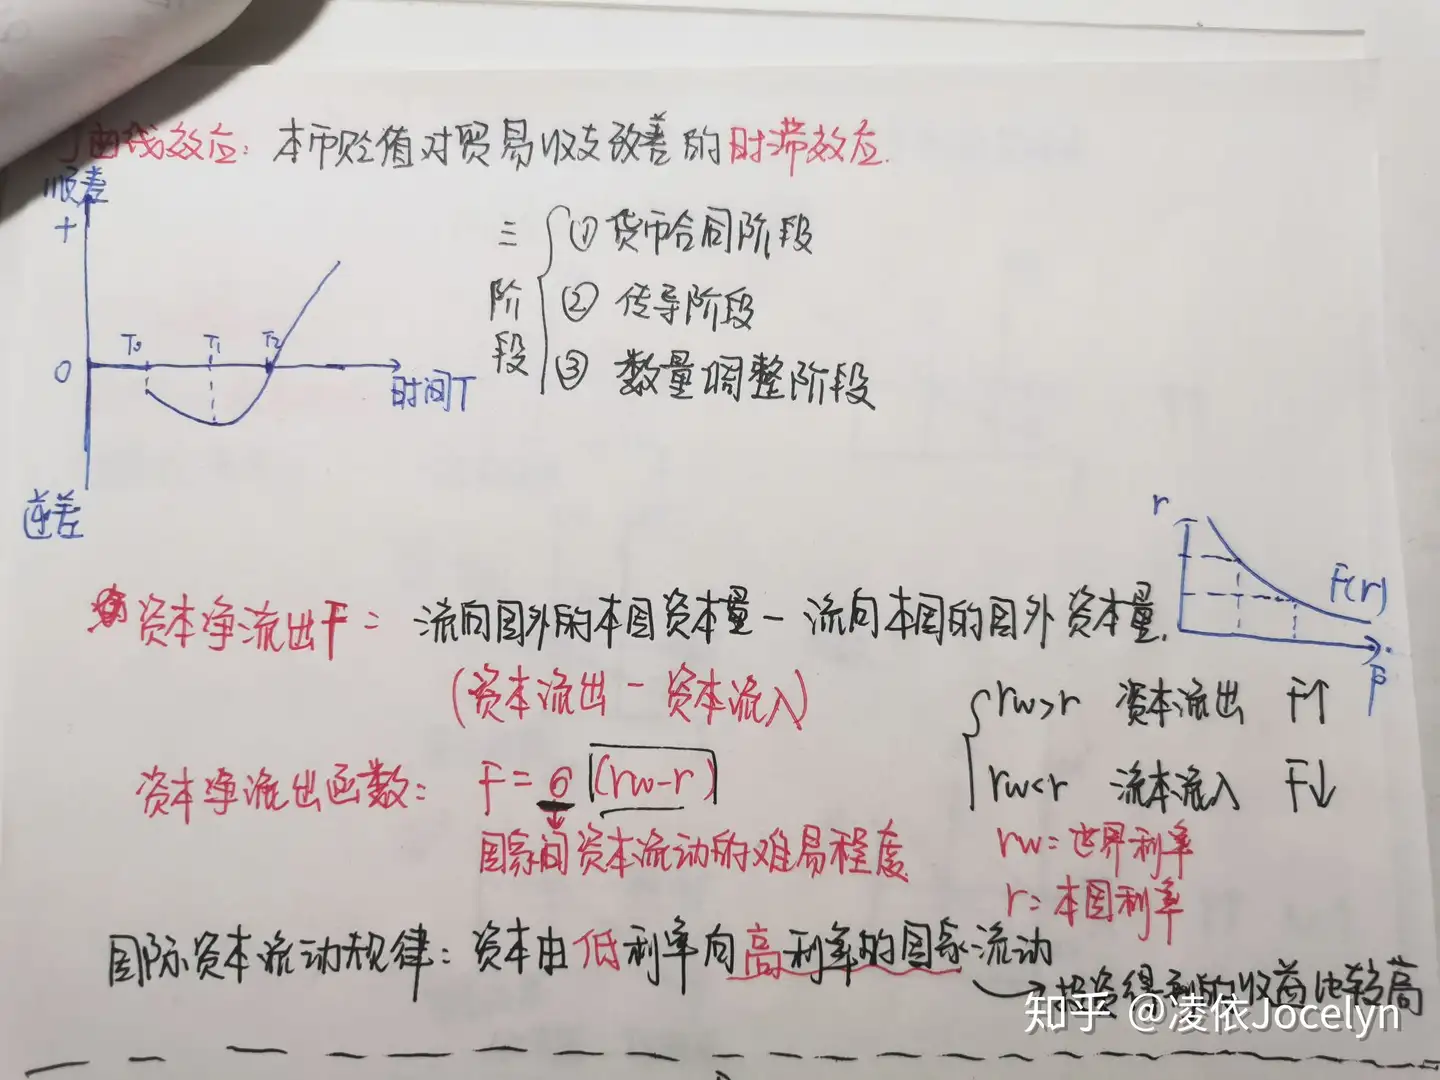 J曲线效应：本币贬值对贸易收支改善的时滞效应.
顺差
+
T0 T1 T2
0
时间T
逆差
三阶段
① 货币合同阶段
② 传导阶段
③ 数量调整阶段
r
F(r)
F
资本净流出F = 流向国外的本国资本量 - 流向本国的国外资本量.
(资本流出 - 资本流入)
rw>r 资本流出 F↑
资本净流出函数: F = σ (rw-r)
rw<r 流本流入 F↓
国家间资本流动的难易程度
rw=世界利率
r=本国利率
国际资本流动规律: 资本由低利率向高利率的国家流动
→投资得到的收益比较高
知乎 @凌依Jocelyn